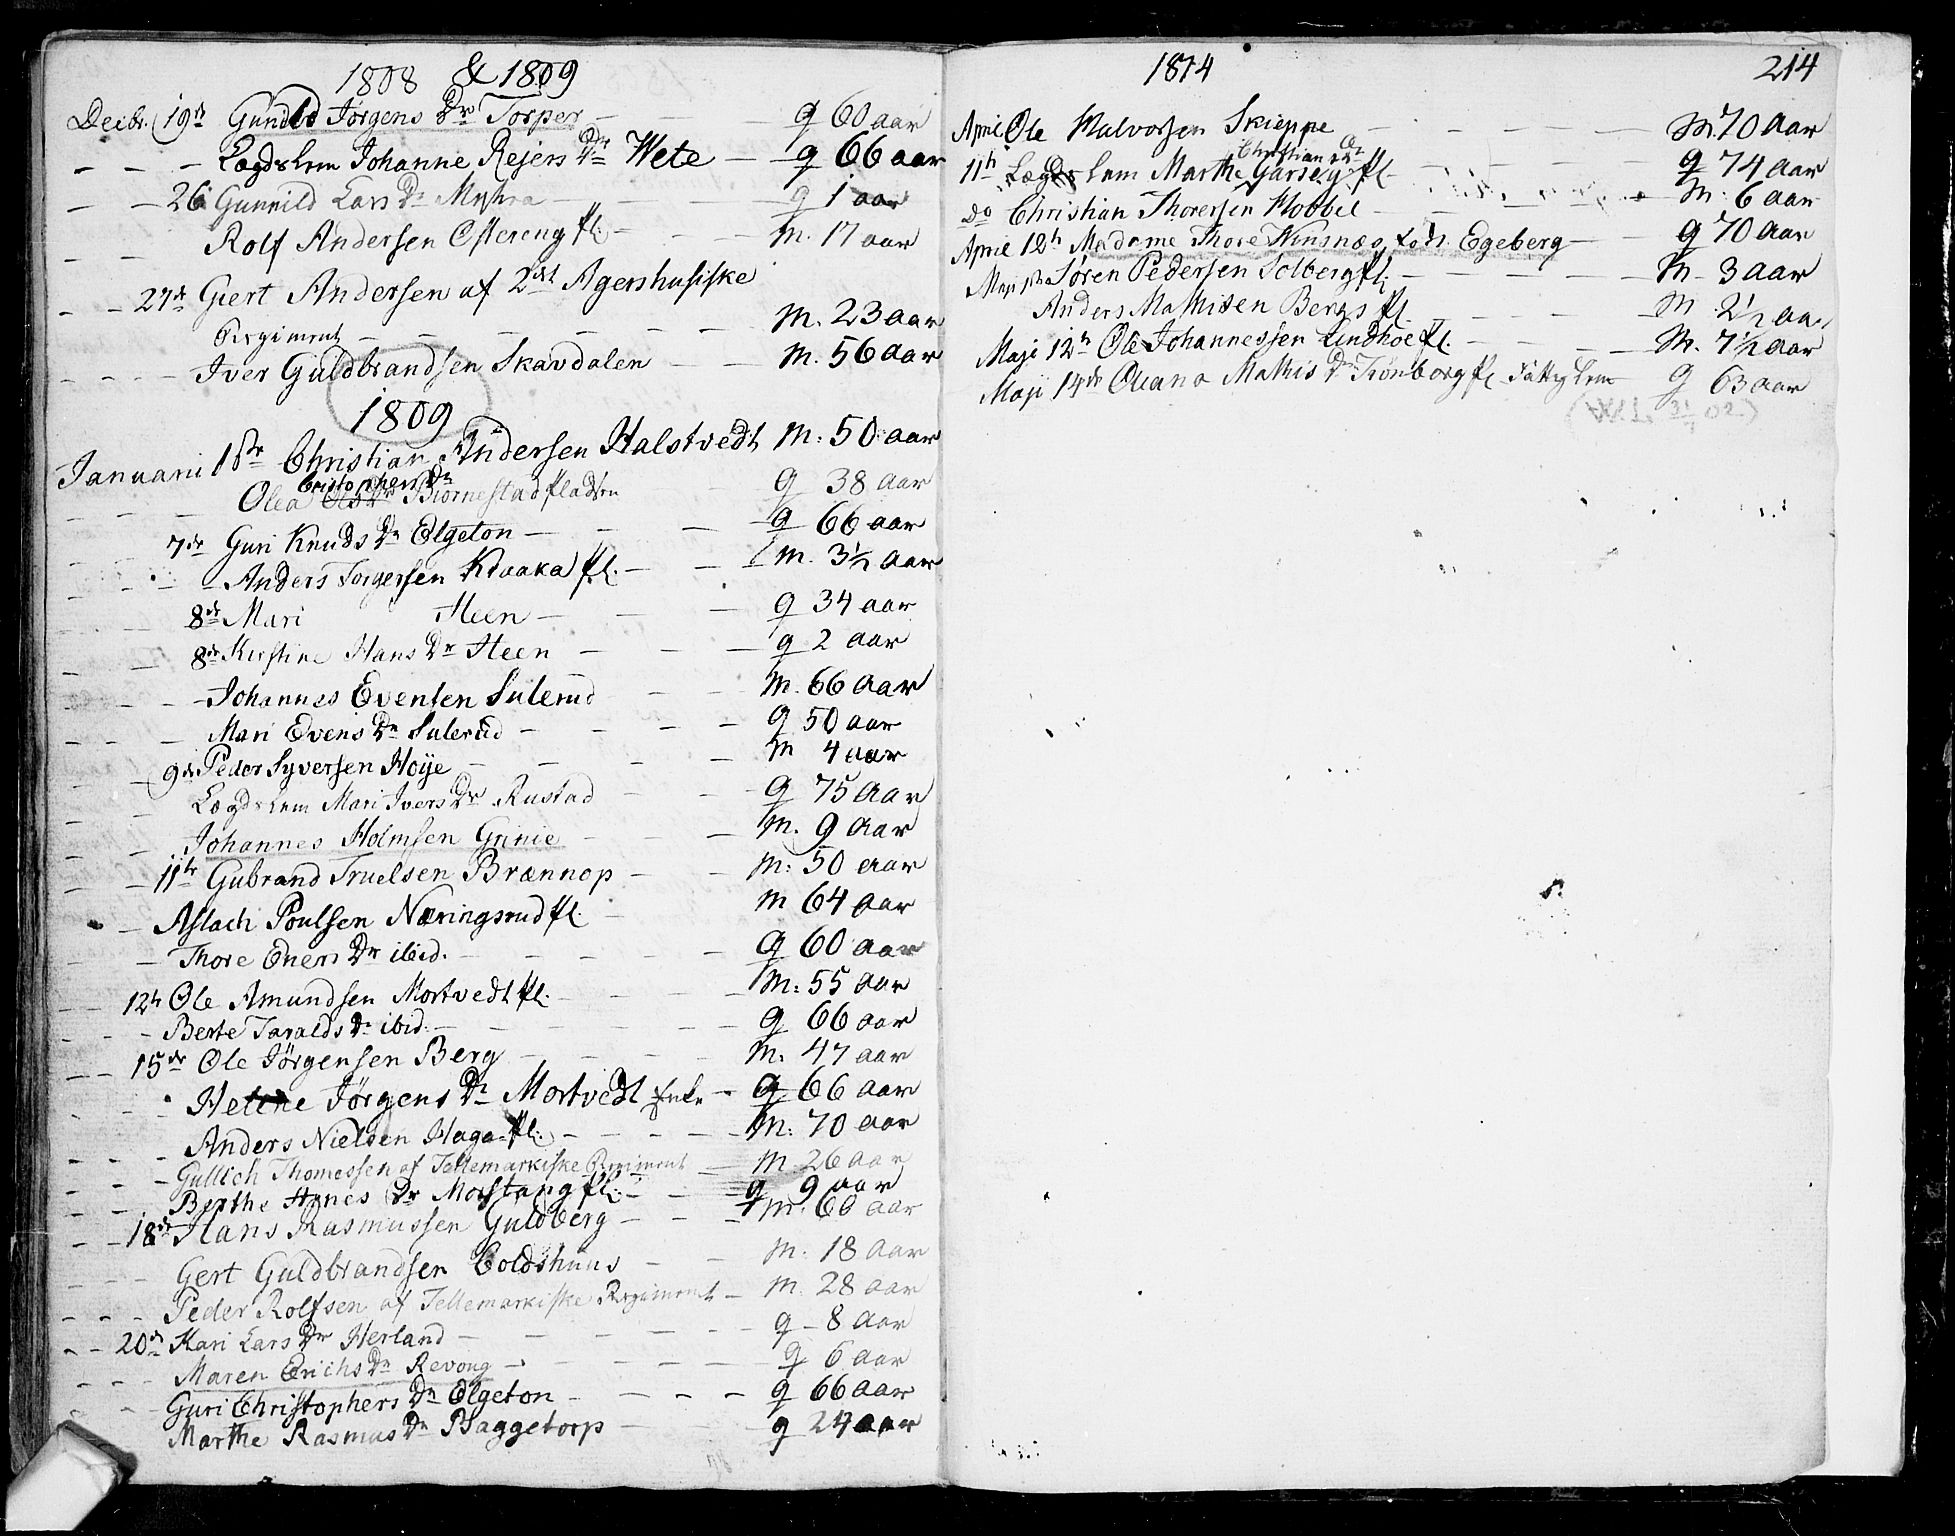 1808 & 1809
Decbr. 19de Gunild Jørgens Dr Torper - - - q 60 aar
- - - Lægdslem Johanne Rejers Dr Wete - q 66 aar
- - - 26 Gunnild Lars Dr Myhra - - - q 1 aar
- - Rolf Andersen Østereng pl. - - - m. 17 aar
- - 27de Giert Andersen af 2det Agershusiske
Regiment - - - - - - m. 23 aar
- - - - Iver Guldbrandsen Skavdalen - - m. 56 aar
1809
Januarii 1ste Christian Andersen Halstvedt m. 50 aar
Christophers Dr
- - - Olea Ols Dr Biørnestad pladsen q 38 aar
7de Guri Knuds Dr Elgeton - - - q 66 aar
- - Anders Torgersen Kraaka pl. - - - m. 3½ aar
8de Mari Heen - - - q 34 aar
8de Kirstine Hans Dr Heen - - - q 2 aar
- - Johannes Evensen Sulerud - - m. 66 aar
- - - Mari Evens Dr Sulerud - - - - q 50 aar
- 9de Peder Syversen Høije - - - - m 4 aar
- - Lægdslem Mari Ivers Dr Rustad - - - q 75 aar
- - Johannes Holmsen Grinie - - - m. 9 aar
- - 11te Gubrand Truelsen Brænnop - - m. 50 aar
- - Aslach Poulsen Næringsrud pl. - m 64 aar
- - Thore Eners Dr ibid. - - - - q 60 aar
- - 12te Ole Amundsen Mortvedt pl. - - - - m. 55 aar
- Berte Taralds Dr ibid. - - - - - q 66 aar
- - 15de Ole Jørgensen Berg - - - - m. 47 aar
- - Helene Jørgens Dr Mortvedt Enke - q 66 aar
- - - Anders Nielsen Haga pl. - - - - - m. 70 aar
- - - Gullich Thomessen af Tellemarkiske Regiment - m 26 aar
- - - Berthe Agnes Dr Morstang pl. - - - q 9 aar
- - 18de Hans Rasmussen Guldberg - - - m. 60 aar
- - - Gert Guldbrandsen Coldshuus - - m. 18 aar
- - - Peder Rolfsen af Tellemarkiske Regiment - m. 28 aar
- - 20de Kari Lars Dr Herland - - - - - q - 8 aar
- - - Maren Erichs Dr Revoug - - - - - q 6 aar
- - - Guri Christophers Dr Elgeton - - - - q 66 aar
Marthe Rasmus Dr Baggetorp - - q 24 aar
1814 214
April Ole Halvorsen Skieppe - - - - m. 70 aar
Christians Dr
11te Lægdslem Marthe Garseg pl. - - - - q 74 aar
do Christian Thoresen Hobbel - - - - m. 6 aar
April 12te Madame Thore Ninsnæs født Egeberg - q 70 aar
Maji Søren Pedersen Solberg pl. - - - - m - 3 aar
Anders Mathisen Bergs pl. - - - - m 2½ aar
Maji 12te Ole Johannessen Lindhoe pl. - - - m. 7½ aar
Maji 14de Oleana Mathis Dr Trønborg pl. Fattiglem q 63 aar